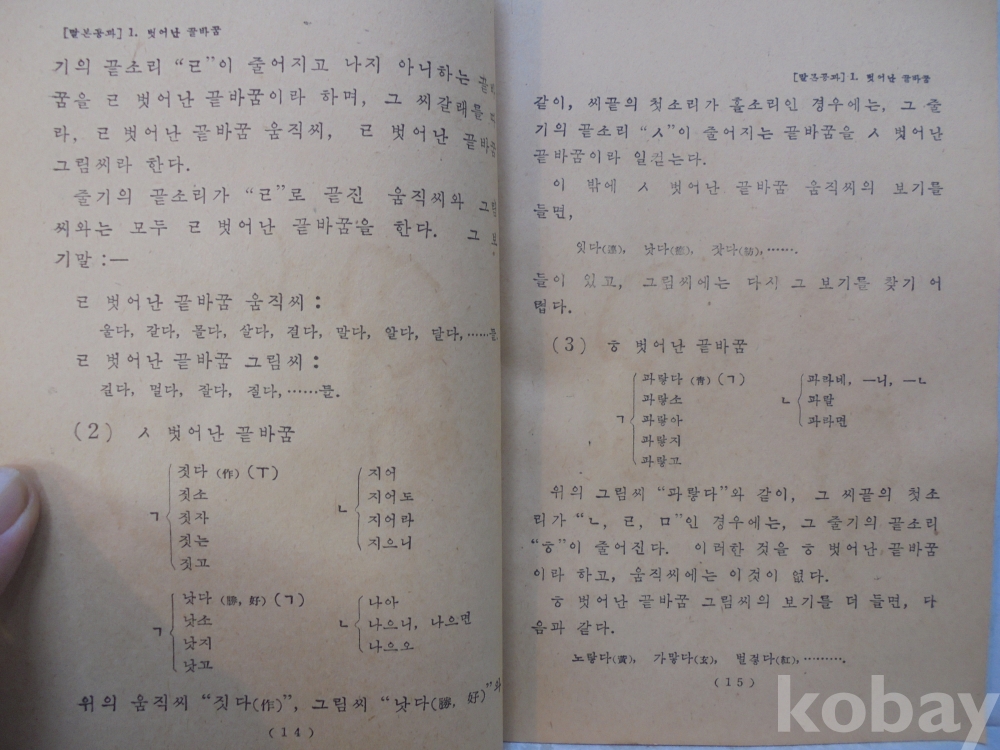 [말본공파] 1. 벗어난 끝바꿈
기의 끝소리 “ㄹ”이 줄어지고 나지 아니하는 끝바
꿈을 ㄹ 벗어난 끝바꿈이라 하며, 그 씨갈래를
라, ㄹ 벗어난 끝바꿈 움직씨, ㄹ 벗어난 끝바꿈
그림씨라 한다.
줄기의 끝소리가 “ㄹ”로 끝진 움직씨와 그림
씨와는 모두 ㄹ 벗어난 끝바꿈을 한다. 그 보
기말 :—
ㄹ 벗어난 끝바꿈 움직씨 :
울다, 갈다, 몰다, 살다, 긷다, 말다, 알다, 달다, ……들
ㄹ 벗어난 끝바꿈 그림씨 :
길다, 멀다, 잘다, 질다, ……들.
(2) ㅅ 벗어난 끝바꿈
ㄱ
짓다 (作) (ㅜ)
짓소
짓자
짓는
짓고
ㄴ
지어
지어도
지어라
지으니
ㄱ
낫다 (勝, 好) (ㄱ)
낫소
낫지
낫고
ㄴ
나아
나으니, 나으면
나으오
위의 움직씨 “짓다(作)”, 그림씨 “낫다(勝, 好)”와
(14)
[말본공파] 1. 벗어난 끝바꿈
같이, 씨끝의 첫소리가 홀소리인 경우에는, 그 줄
기의 끝소리 “ㅅ”이 줄어지는 끝바꿈을 ㅅ 벗어난
끝바꿈이라 일컫는다.
이 밖에 ㅅ 벗어난 끝바꿈 움직씨의 보기를
들면,
잇다(連), 낫다(癒), 잣다(紡), …….
들이 있고, 그림씨에는 다시 그 보기를 찾기 어
렵다.
(3) ㅎ 벗어난 끝바꿈
ㄱ
파랗다 (靑) (ㄱ)
파랗소
파랗아
파랗지
파랗고
ㄴ
파라네, ―니, ―ㄴ
파랄
파라면
위의 그림씨 “파랗다”와 같이, 그 씨끝의 첫소
리가 “ㄴ, ㄹ, ㅁ”인 경우에는, 그 줄기의 끝소리
“ㅎ”이 줄어진다. 이러한 것을 ㅎ 벗어난 끝바꿈
이라 하고, 움직씨에는 이것이 없다.
ㅎ 벗어난 끝바꿈 그림씨의 보기를 더 들면, 다
음과 같다.
노랗다(黃), 가맣다(玄), 벌겋다(紅), ………
(15)
kobay